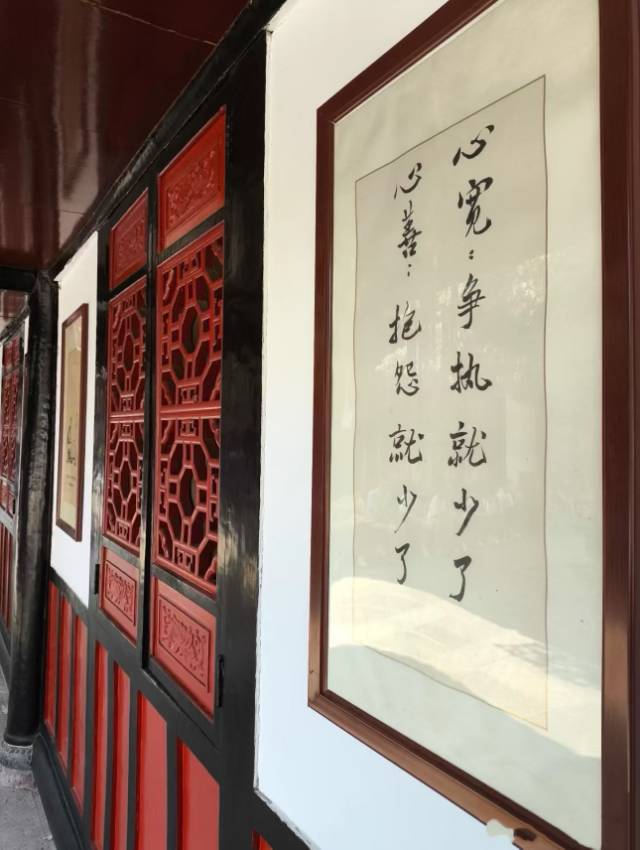 心宽：争执就少了
心善：抱怨就少了